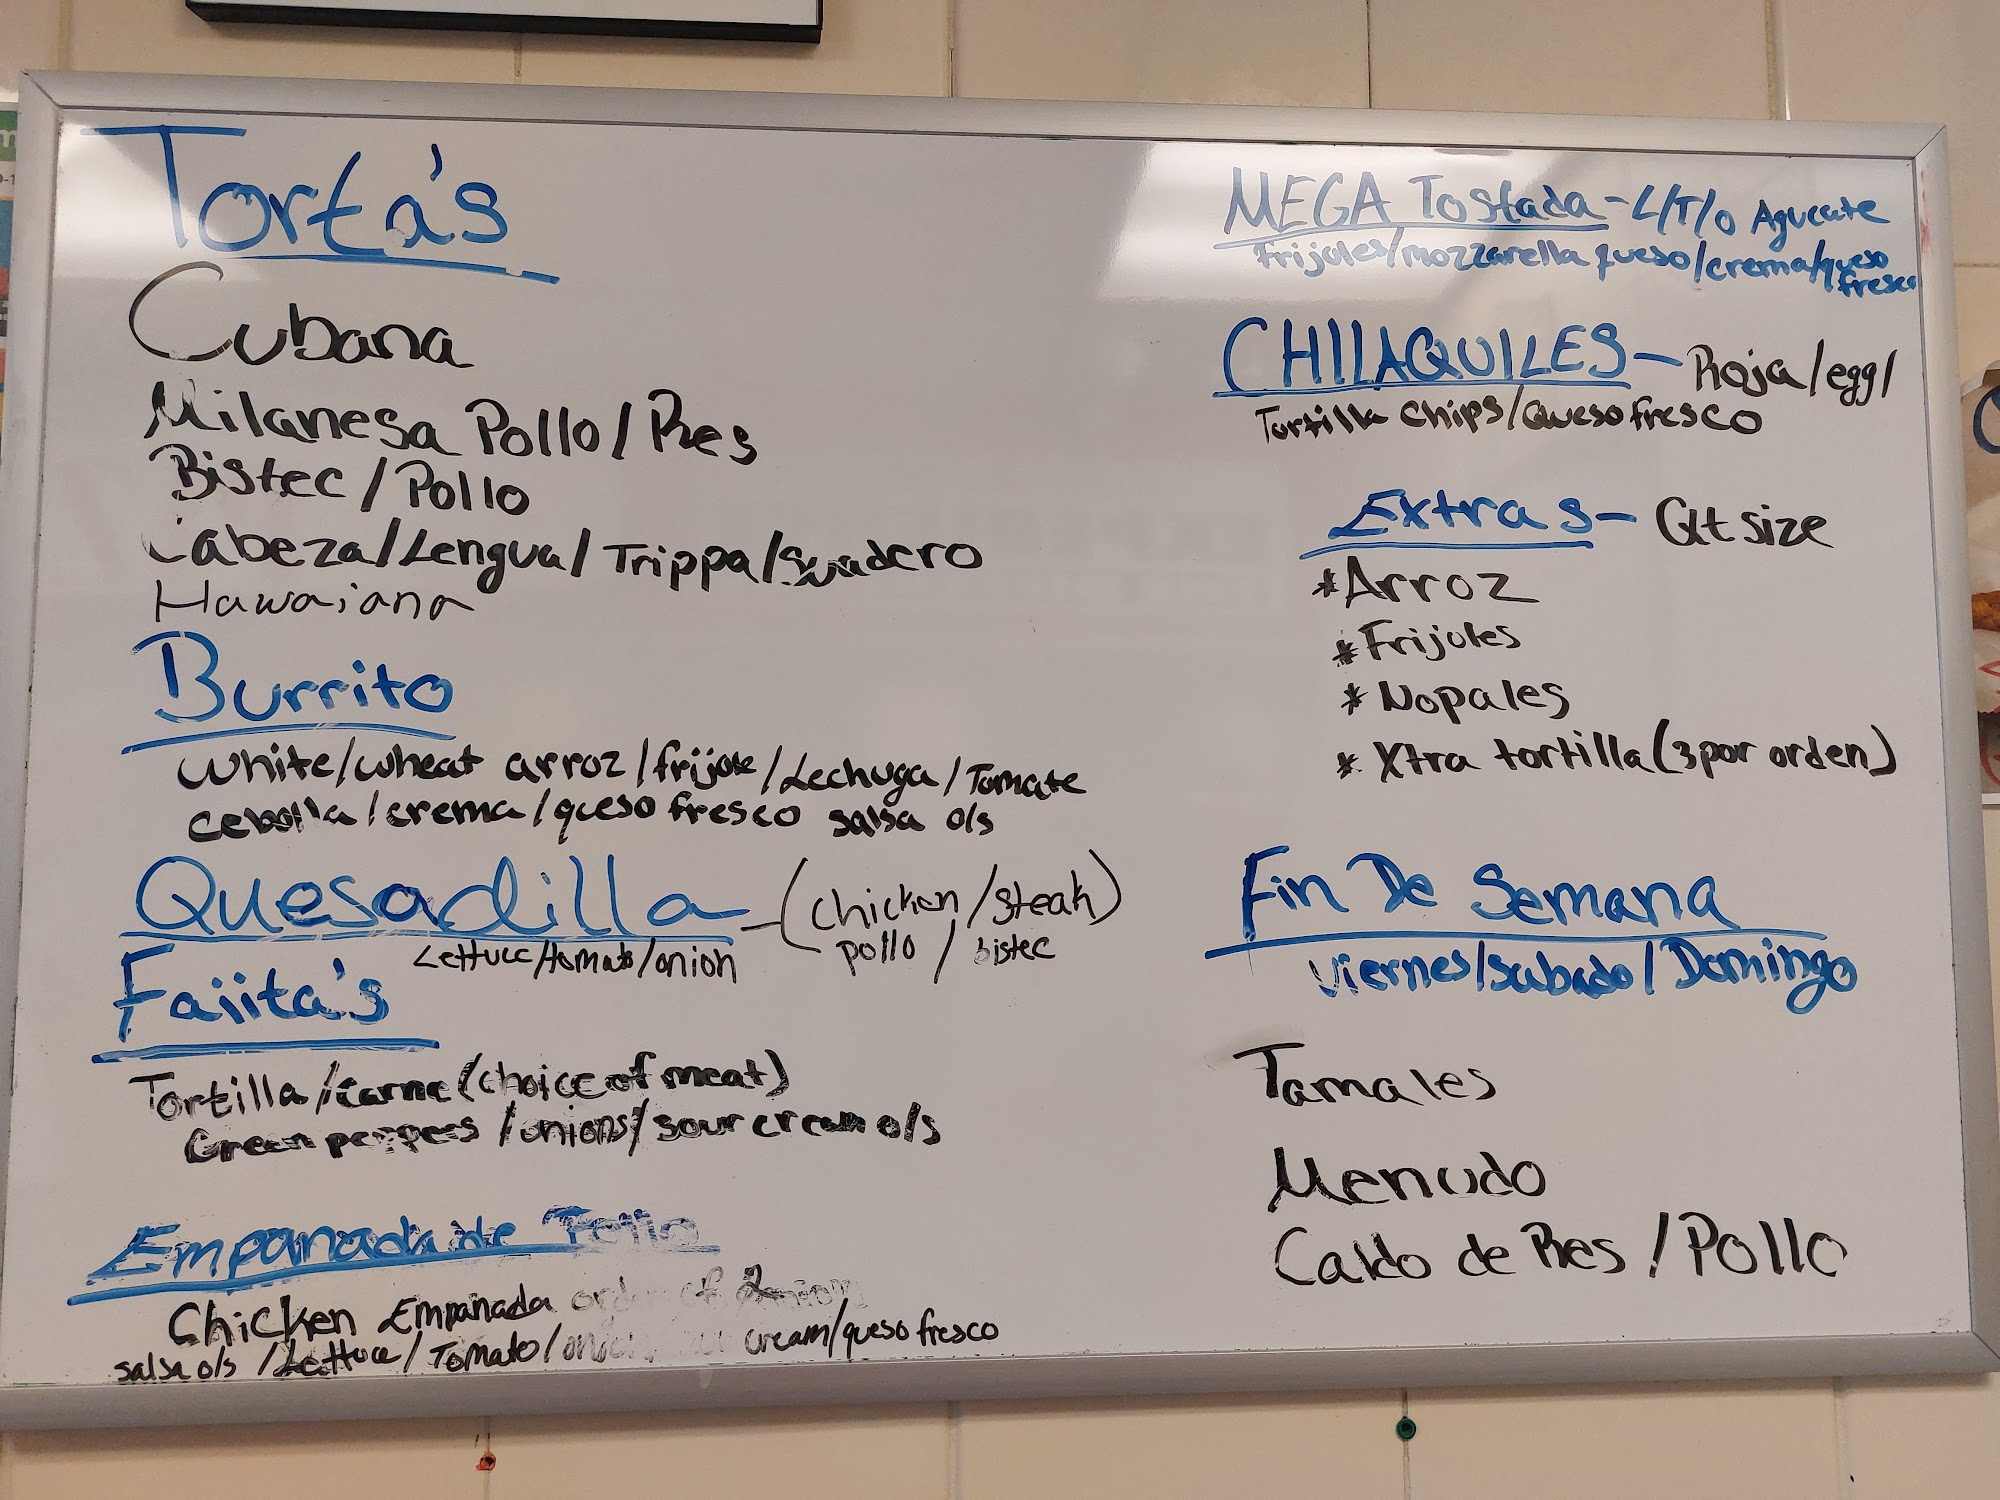 Torta's
Cubana
Milanesa Pollo/Res
Bistec/Pollo
Cabeza/Lengua/Trippa/Suadero
Hawaiana
Burrito
White/wheat arroz/frijole/Lechuga/Tomate
cebolla/crema/queso fresco salsa o/s
Quesadilla-(chicken/steak)
Lettuce/tomato/onion pollo/bistec
Fajita's
Tortilla/carne(choice of meat)
Green peppers/onions/sour cream o/s
Empanada de Pollo
Chicken Empanada order of 2
salsa o/s/Lettuce/Tomato/onion cream/queso fresco
MEGA Tostada-L/T/o Agucate
frijoles/mozzarella queso/crema/queso
fresco
CHIlAQUILES-Roja/egg/
Tortilla chips/Queso fresco
Extras-Qt size
*Arroz
*Frijoles
*Nopales
*Xtra tortilla(3 por orden)
Fin De Semana
Viernes/sabado/Domingo
Tamales
Menudo
Caldo de Res/Pollo